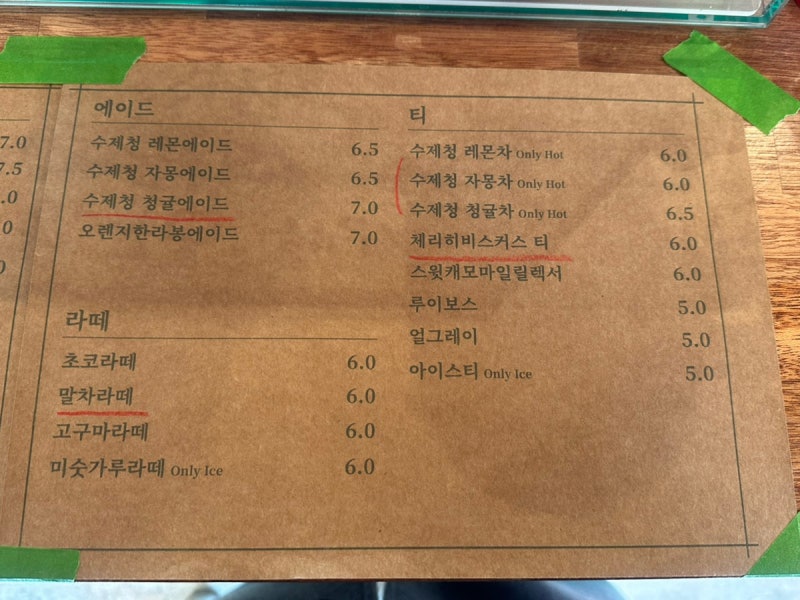 7.0
7.5
.0
0
0
에이드
수제청 레몬에이드 6.5
수제청 자몽에이드 6.5
수제청 청귤에이드 7.0
오렌지한라봉에이드 7.0
라떼
초코라떼 6.0
말차라떼 6.0
고구마라떼 6.0
미숫가루라떼 Only Ice 6.0
티
수제청 레몬차 Only Hot 6.0
수제청 자몽차 Only Hot 6.0
수제청 청귤차 Only Hot 6.5
체리히비스커스 티 6.0
스윗캐모마일릴렉서 6.0
루이보스 5.0
얼그레이 5.0
아이스티 Only Ice 5.0